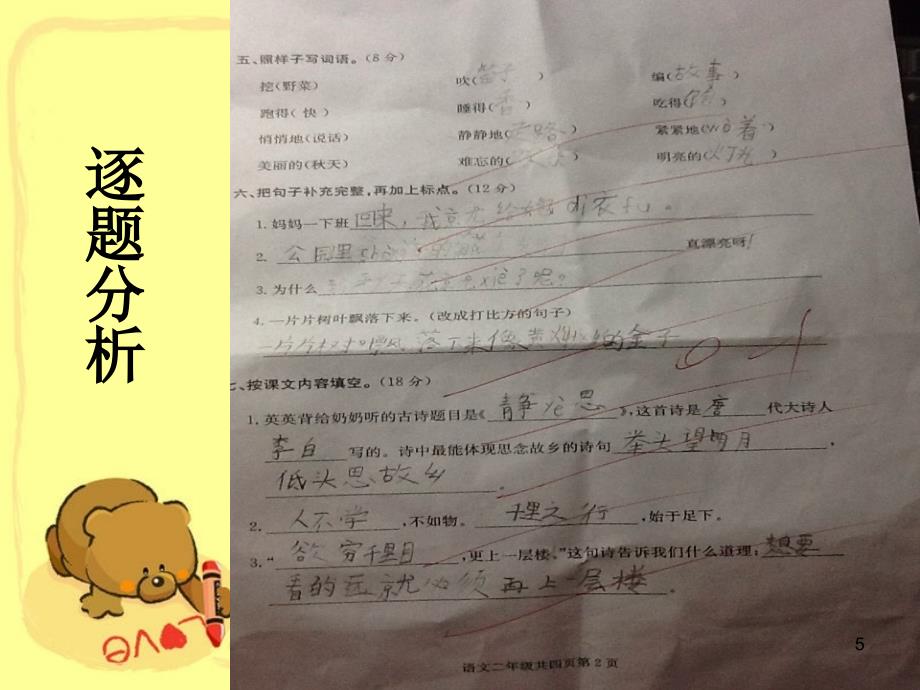 逐题分析
五、照样子写词语。(8分)
挖(野菜) 吹(笛子) 编(故事)
跑得(快) 睡得(香) 吃得(饱)
悄悄地(说话) 静静地(走路) 紧紧地(wò着)
美丽的(秋天) 难忘的( ) 明亮的(火丁光)
六、把句子补充完整,再加上标点。(12分)
1.妈妈一下班回来，我 给 衣fu。
2. 公园里 的 真漂亮呀!
3.为什么 了呢?
4.一片片树叶飘落下来。(改成打比方的句子)
一片片 落下来像 的金子
七、按课文内容填空。(18分)
1.英英背给奶奶听的古诗题目是《静 思》,这首诗是唐代大诗人
李白写的。诗中最能体现思念故乡的诗句举头望明月,
低头思故乡。
2. 人不学,不如物。千里之行,始于足下。
3.“欲穷千里目,更上一层楼。”这句诗告诉我们什么道理:想要
看的远就必须再上一层楼。
语文二年级共四页第2页
5
LOVE